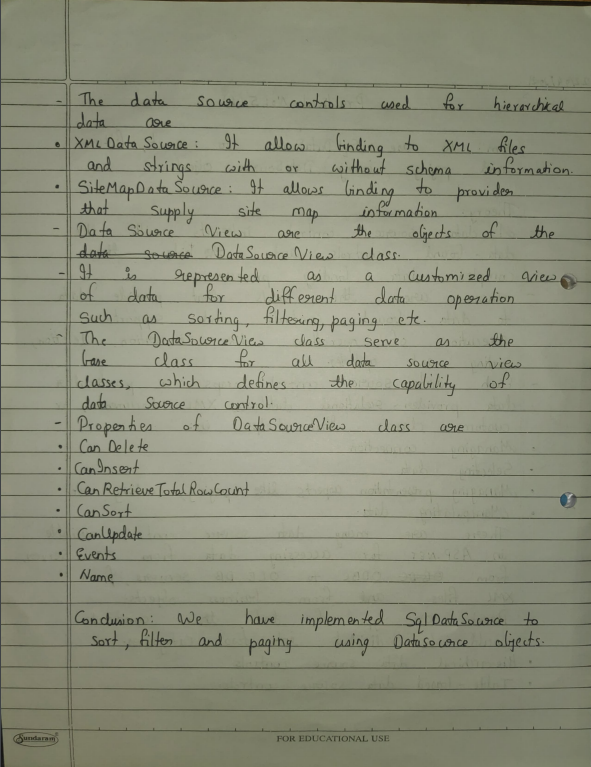 - The data source controls used for hierarchical
data are
• XML Data Source : It allow binding to XML files
and strings with or without schema information.
• SiteMapData Source : It allows binding to provider
that supply site map information
- Data Source View are the objects of the
data source DataSourceView class.
- It is represented as a customized view
of data for different data operation
such as sorting, filtering, paging etc.
- The DataSourceView class serve as the
base class for all data source view
classes, which defines the capability of
data source control.
- Properties of DataSourceView class are
• Can Delete
• CanInsert
• CanRetrieveTotalRowCount
• CanSort
• CanUpdate
• Events
• Name
Conclusion : We have implemented SqlDataSource to
sort, filter and paging using Datasource objects.
Sundaram
FOR EDUCATIONAL USE